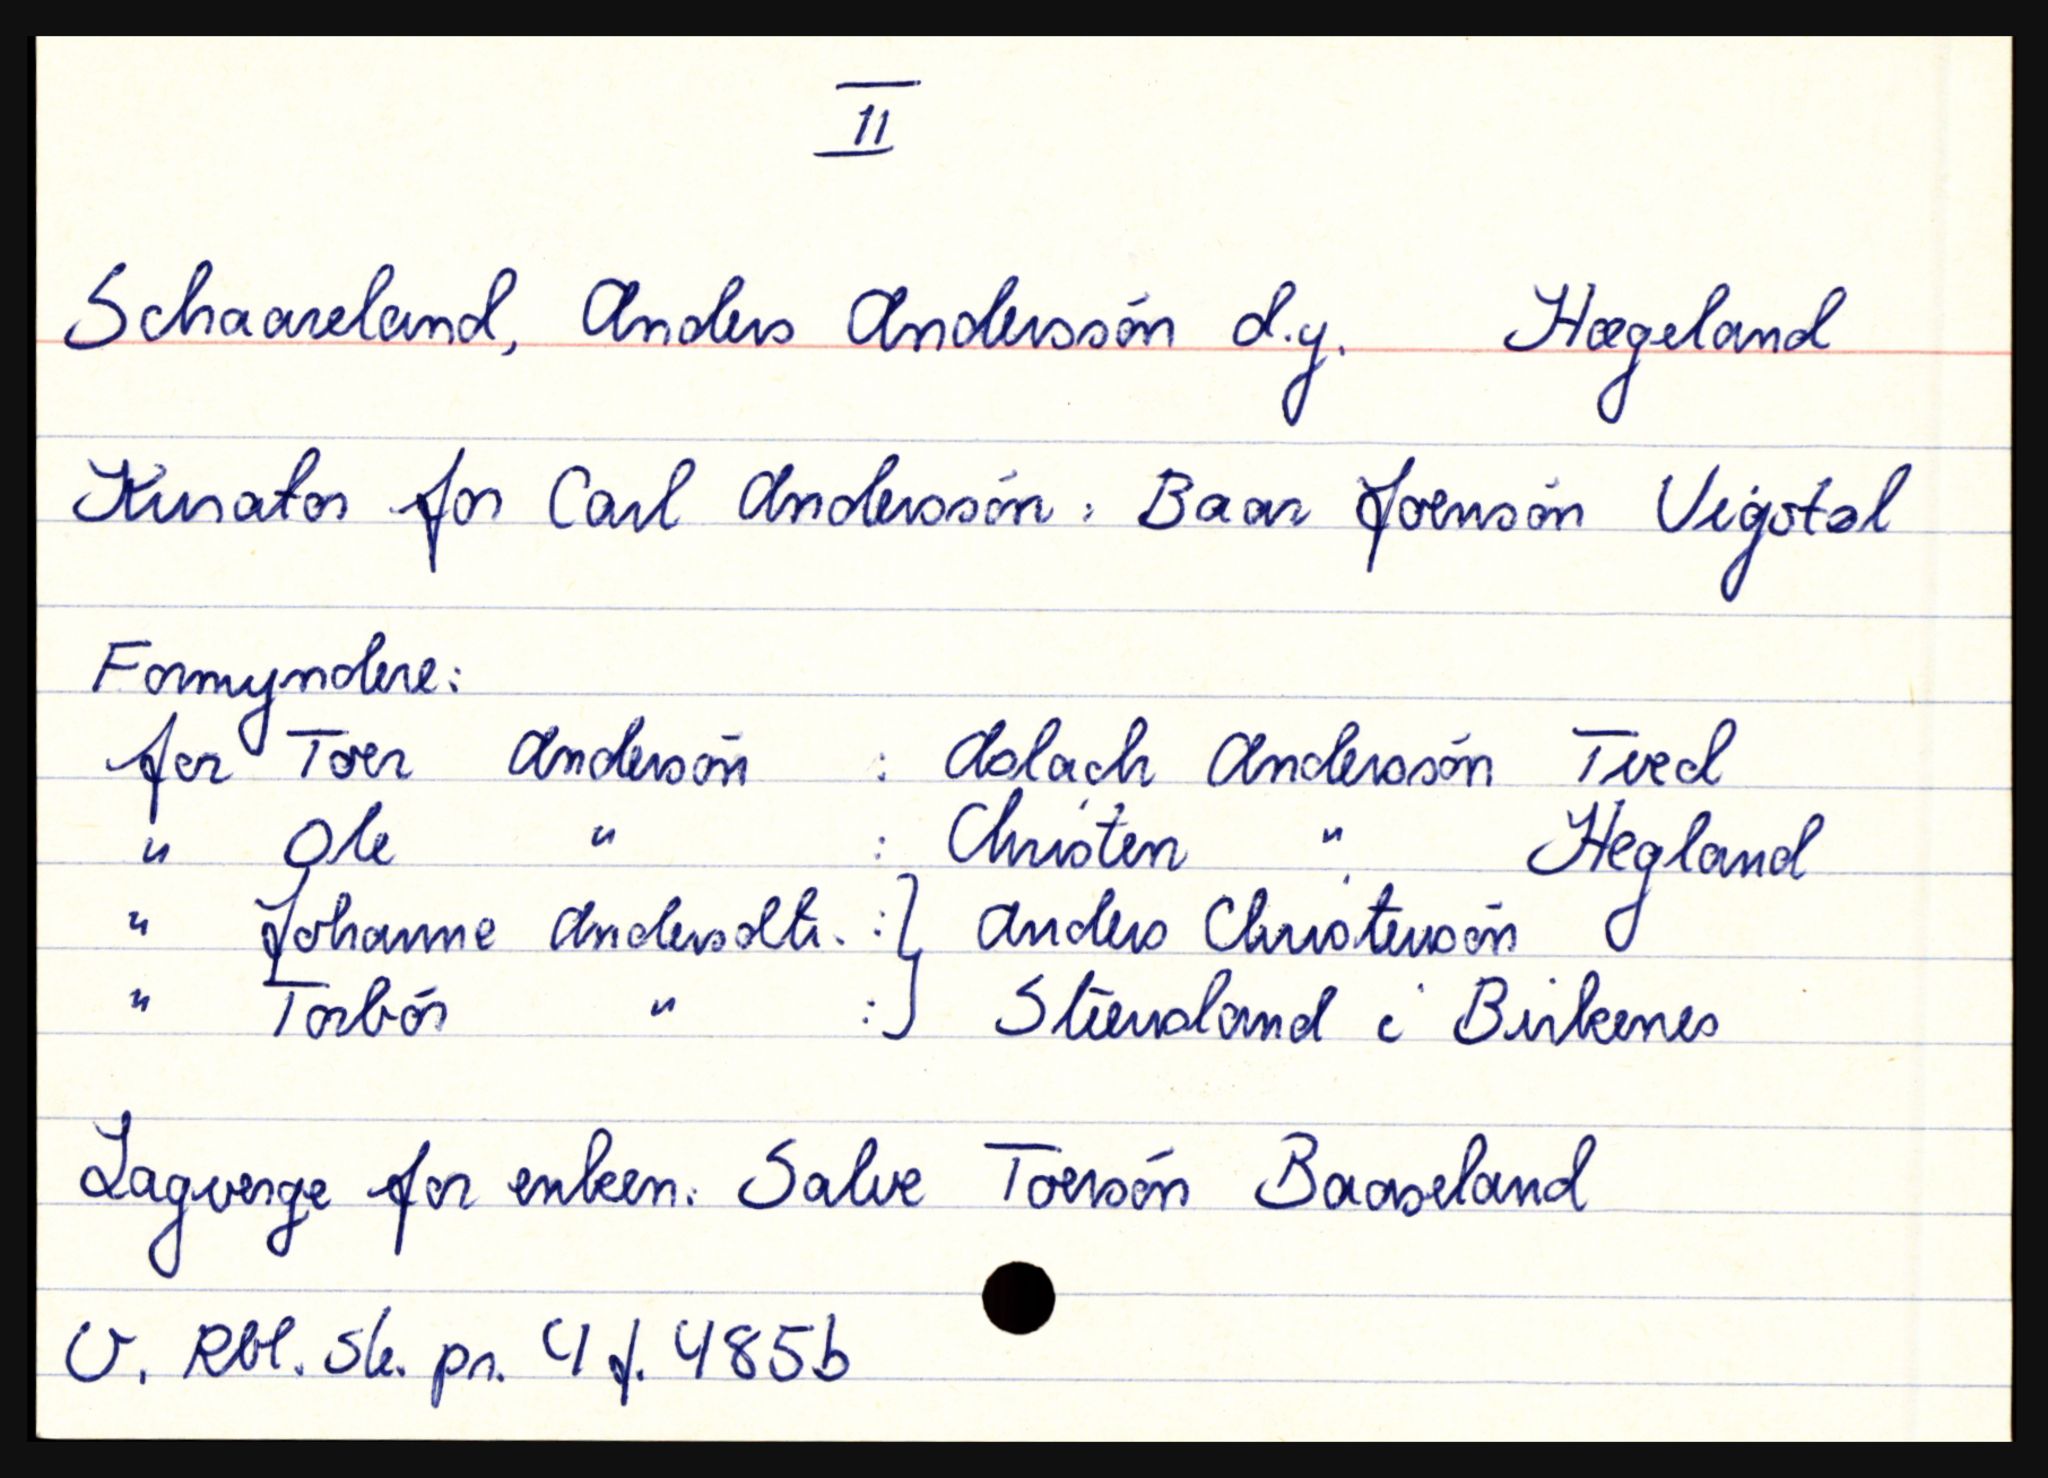 II
Schaareland, Anders Anderssón d.y. Hægeland
Kurator for Carl Anderssón: Baar Joensón Vigstøl
Formyndere:
for Toer Andersón : Aslach Anderssón Tved
" Ole " : Christen " Hegland
" Johanne Andersdtr. :} Anders Christensón
" Torbór " :} Stiensland i Birkenes
Lagverge for enken: Salve Toersón Baaseland
V. Rbl. Sk. pr. 4 f. 485b